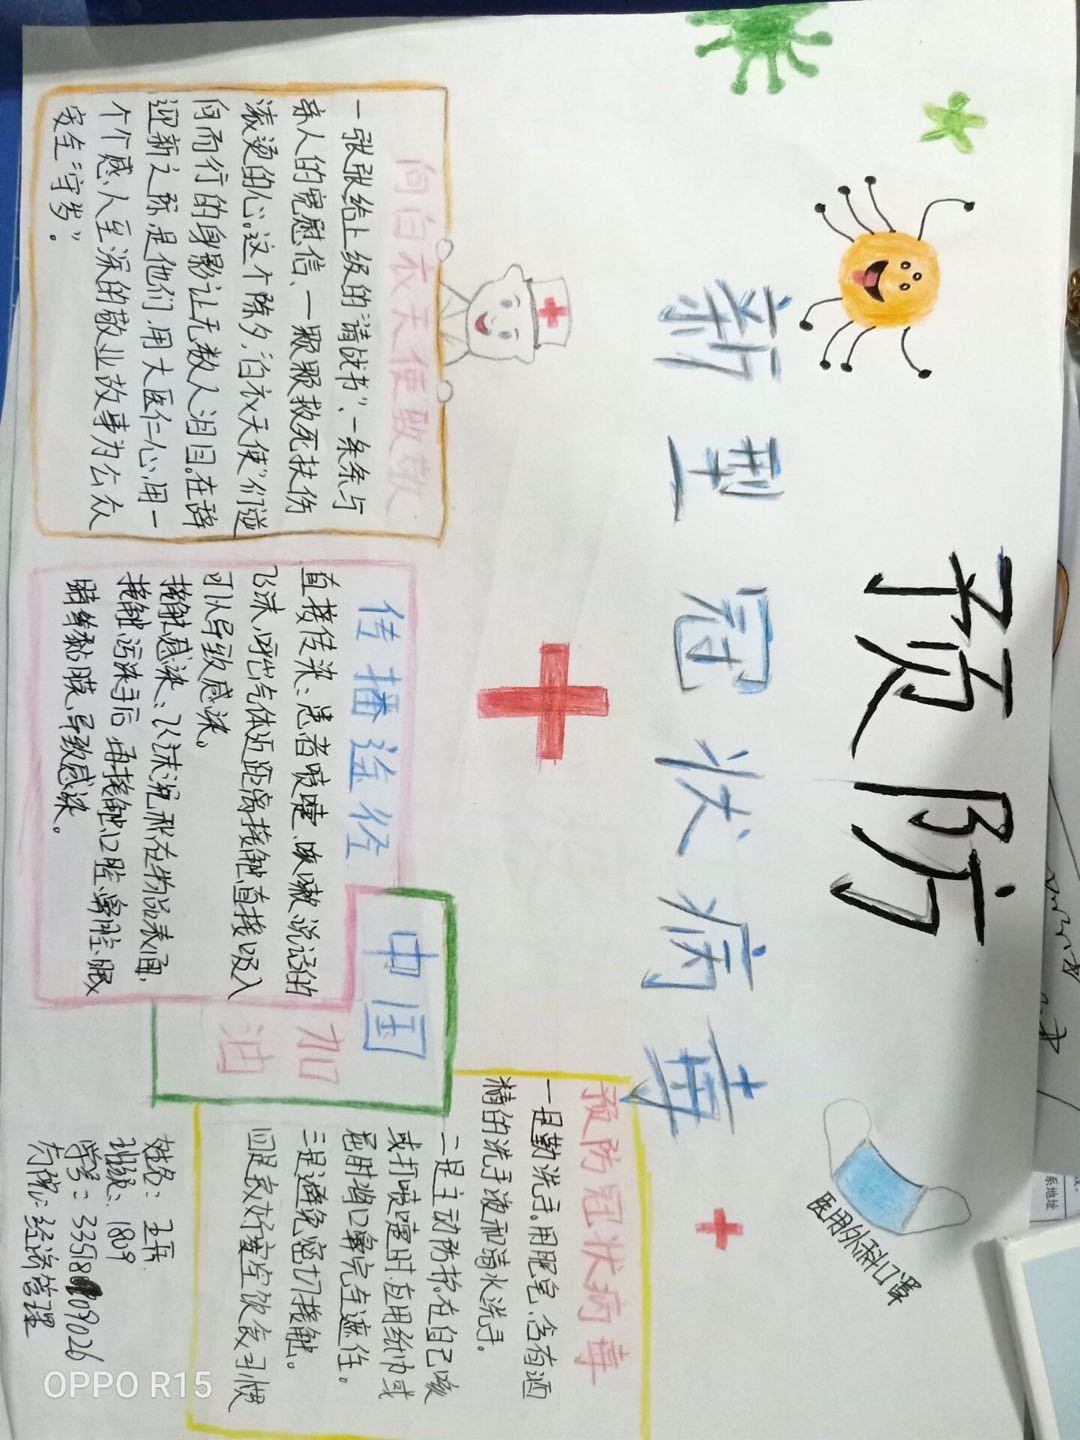 预防
新型冠状病毒
医用外科口罩
向白衣天使致敬
一张张给上级的“请战书”、一条条与
亲人的宽慰信、一颗颗救死扶伤
滚烫的心。这个除夕,“白衣天使”们逆
向而行的身影让无数人泪目。在辞
迎新之际,是他们,用大医仁心,用一
个个感人至深的敬业故事为公众
安全“守岁”。
传播途径
直接传染、患者喷嚏、咳嗽、说话的
飞沫,呼出气体近距离接触直接吸入
可以导致感染。
接触感染、飞沫混在物品表面,
接触污染手后,再接触口腔、鼻腔、眼
睛等黏膜,导致感染。
中国
加
油
预防冠状病毒
一是勤洗手。用肥皂、含有酒
精的洗手液和清水洗手。
二是主动防护,在自己咳
或打喷嚏时,应用纸巾或
屈肘将口鼻完全遮住。
三是避免密切接触。
四是良好安全饮食习惯
姓名:王
班级:1809
学号:33518 09026
院:经济管理
OPPO R15
系地址